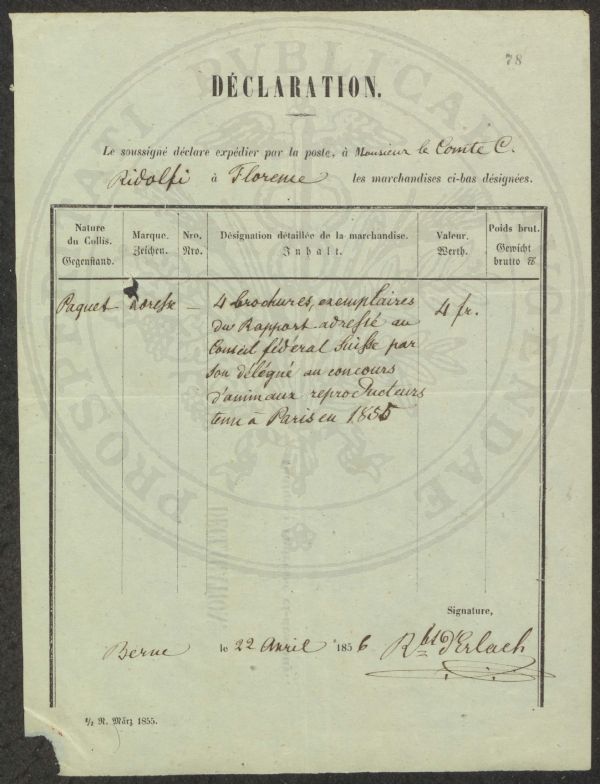 78
DÉCLARATION.
Le soussigné déclare expédier par la poste, à Monsieur le Comte C.
Ridolfi à Florence les marchandises ci-bas désignées.
Nature du Collis. Gegenstand.
Marque. Zeichen.
Nro. Nro.
Désignation détaillée de la marchandise. Inhalt.
Valeur. Werth.
Poids brut. Gewicht brutto ℔
Paquet adresse — 4 brochures, exemplaires 4 fr.
du Rapport adressé au
Conseil fédéral Suisse par
son délégué au concours
d'animaux reproducteurs
tenu à Paris en 1855
Signature,
Berne le 22 Avril 1856 d'Erlach
½ R. März 1855.
PROSPERITATI PVBLICAE AVGENDAE
DÉCLARATION